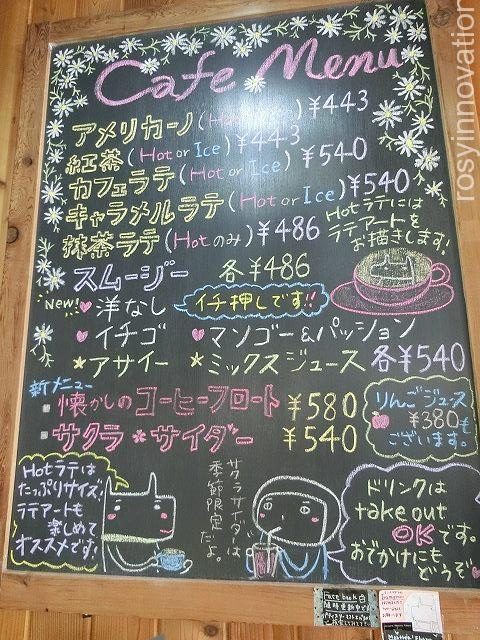 Cafe Menu
アメリカーノ (Hot or Ice) ¥443
紅茶 (Hot or Ice) ¥443
カフェラテ (Hot or Ice) ¥540
キャラメルラテ (Hot or Ice) ¥540
抹茶ラテ (Hotのみ) ¥486
Hotラテには
ラテアートを
お描きします!
スムージー 各¥486
New! ♥洋なし イチ押しです!!
♥イチゴ ♥マンゴー&パッション
★アサイー ★ミックスジュース 各¥540
新メニュー
懐かしのコーヒーフロート ¥580
サクラ*サイダー ¥540
りんごジュース
¥380も
ございます。
Hotラテは
たっぷりサイズ!
ラテアートも
楽しめて
オススメです!
サクラサイダーは
季節限定だよ。
ドリンクは
take out
OKです。
おでかけにも
どうぞ♥
Facebookも
随時更新中です
rosyinnovation